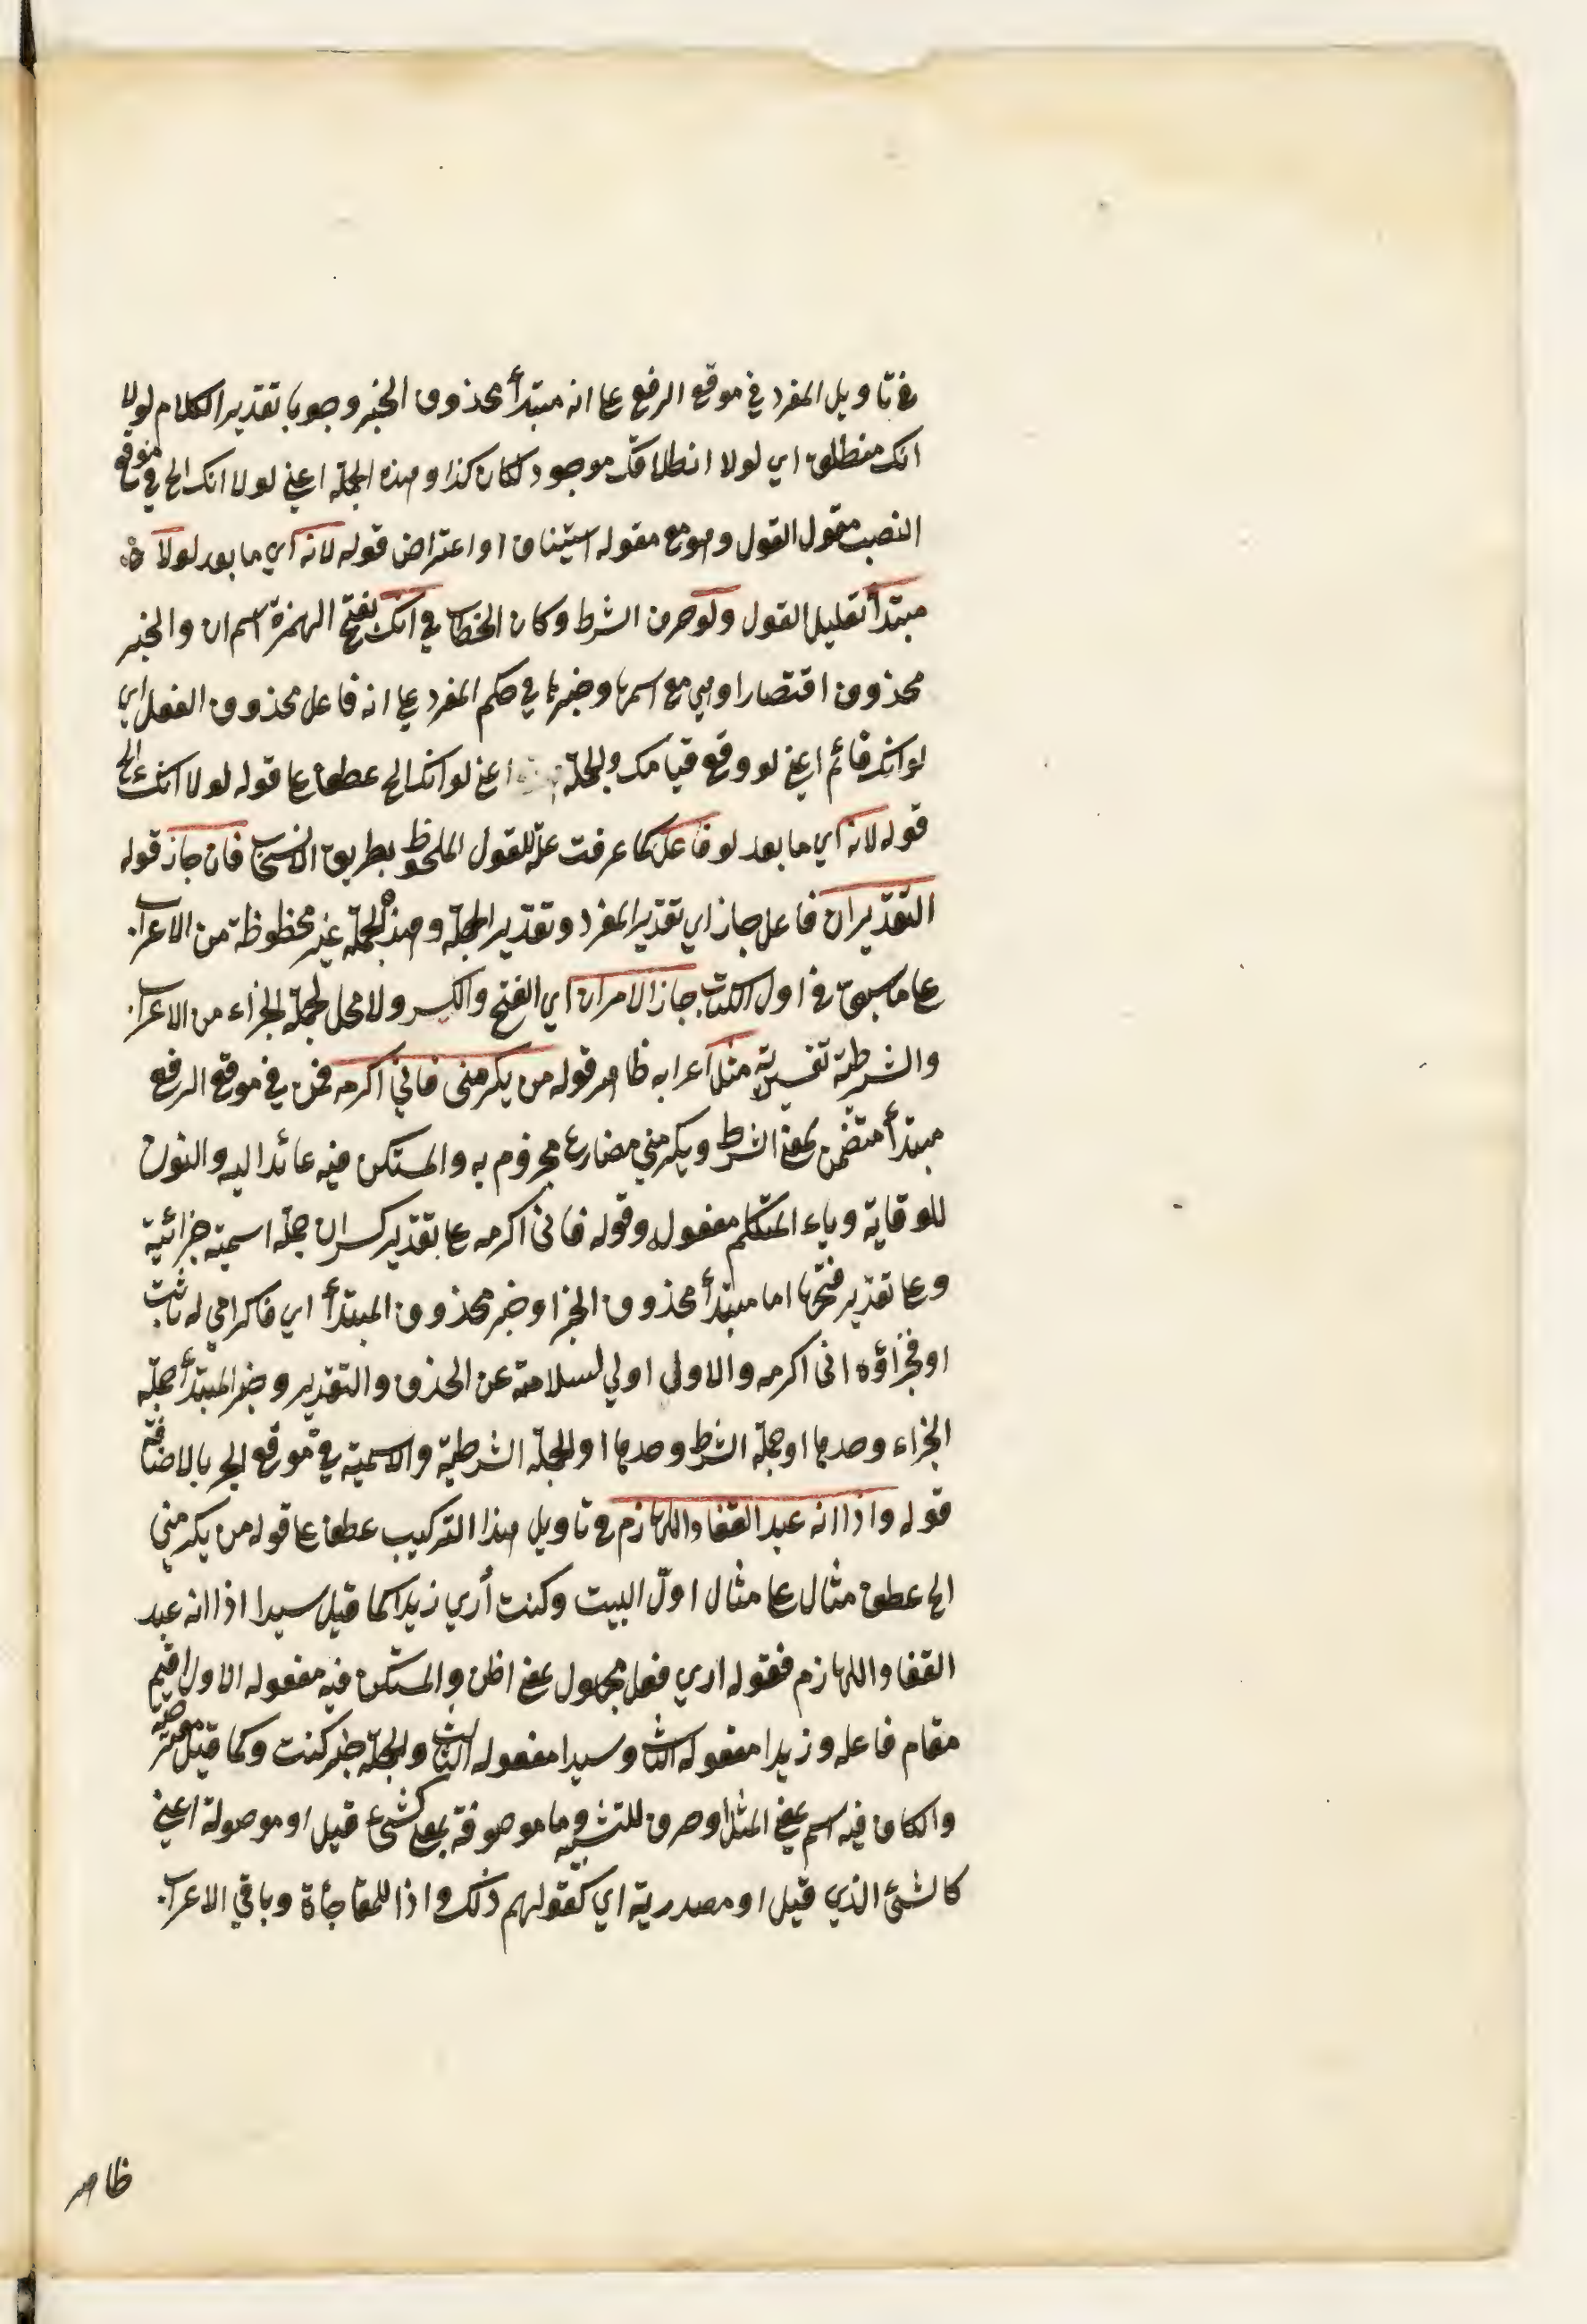 في تاويل المفرد في موقع الرفع على انه مبتدأ محذوف الخبر وجوبا بتقدير الكلام لولا
انك منطلق اي لولا انطلاقك موجود لكان كذا وهذه الجملة اعني لولا انك الخ في موقع
النصب مقول القول وهو مع مقوله استيناف او اعتراض قوله لانه اي ما بعد لولا
مبتدأ تعليل القول ولو حرف الشرط وكان الخطاب في انك بفتح الهمزة اسم ان والخبر
محذوف اقتصارا وهي مع اسمها وخبرها في حكم المفرد على انه فاعل محذوف الفعل اي
لو انك قائم اعني لو وقع قيامك والجملة اعني لو انك الخ عطف على قوله لولا انك الخ
قوله لانه اي ما بعد لو فاعل كما عرفت علة للقول الملحوظ بطريق الانسحاب فان جاز قوله
التقديران فاعل جاز اي تقدير المفرد وتقدير الجملة وهذه الجملة غير محظوظة من الاعراب
على ما سبق في اول الكتاب جاز الامران اي الفتح والكسر ولا محل لجملة الجزاء من الاعراب
والشرطية تفسيرية مثل اعرابه ظاهر قوله من يكرمني فاني اكرمه فمن في موقع الرفع
مبتدأ متضمن لمعنى الشرط ويكرمني مضارع مجزوم به والمستكن فيه عائد اليه والنون
للوقاية وياء المتكلم مفعوله وقوله فاني اكرمه على تقدير كسر ان جملة اسمية جزائية
وعلى تقدير فتحها اما مبتدأ محذوف الخبر او خبر محذوف المبتدأ اي فاكرامي له ثابت
او فجزاؤه اني اكرمه والاولى اولي لسلامة عن الحذف والتقدير وخبر المبتدأ جملة
الجزاء وحدها او جملة الشرط وحدها او الجملة الشرطية والاسمية في موقع الجر بالاضافة
قوله واذا انه عبد القفا واللهازم في تاويل هذا التركيب عطف على قوله من يكرمني
الخ عطف مثال على مثال اول البيت وكنت أري زيدا كما قيل سيدا اذا انه عبد
القفا واللهازم فقوله اري فعل مجهول بمعنى اظن والمستكن فيه مفعوله الاول اقيم
مقام فاعله وزيدا مفعوله الثاني وسيدا مفعوله الثالث والجملة خبر كنت وكما قيل معترضة
والكاف فيه اسم بمعنى المثل او حرف للتشبيه وما موصوفة بمعنى كشيء قيل او موصولة اعني
كالشئ الذي قيل او مصدرية اي كقولهم ذلك واذا للمفاجأة وباقي الاعراب
ظاهر